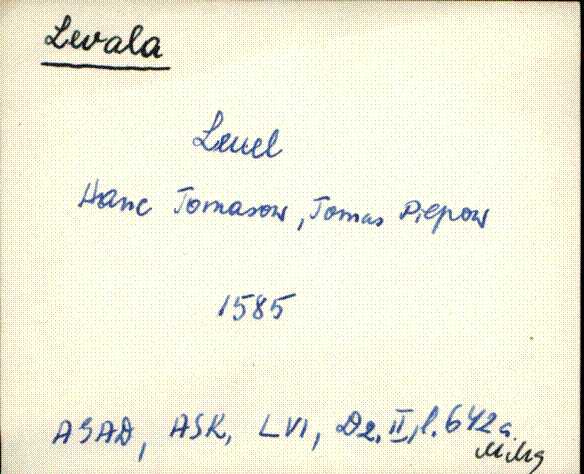 Levala
Leuel
Hanc Tomasow, Tomas Piepow
1585
ASAD, ASK, LVI, D2, II, l. 642a.